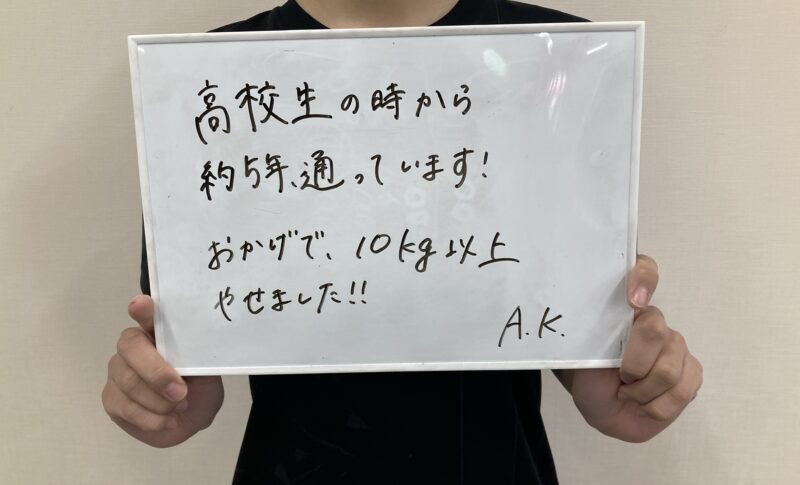 高校生の時から
約5年、通っています!
おかげで、10kg以上
やせました!!
A.K.